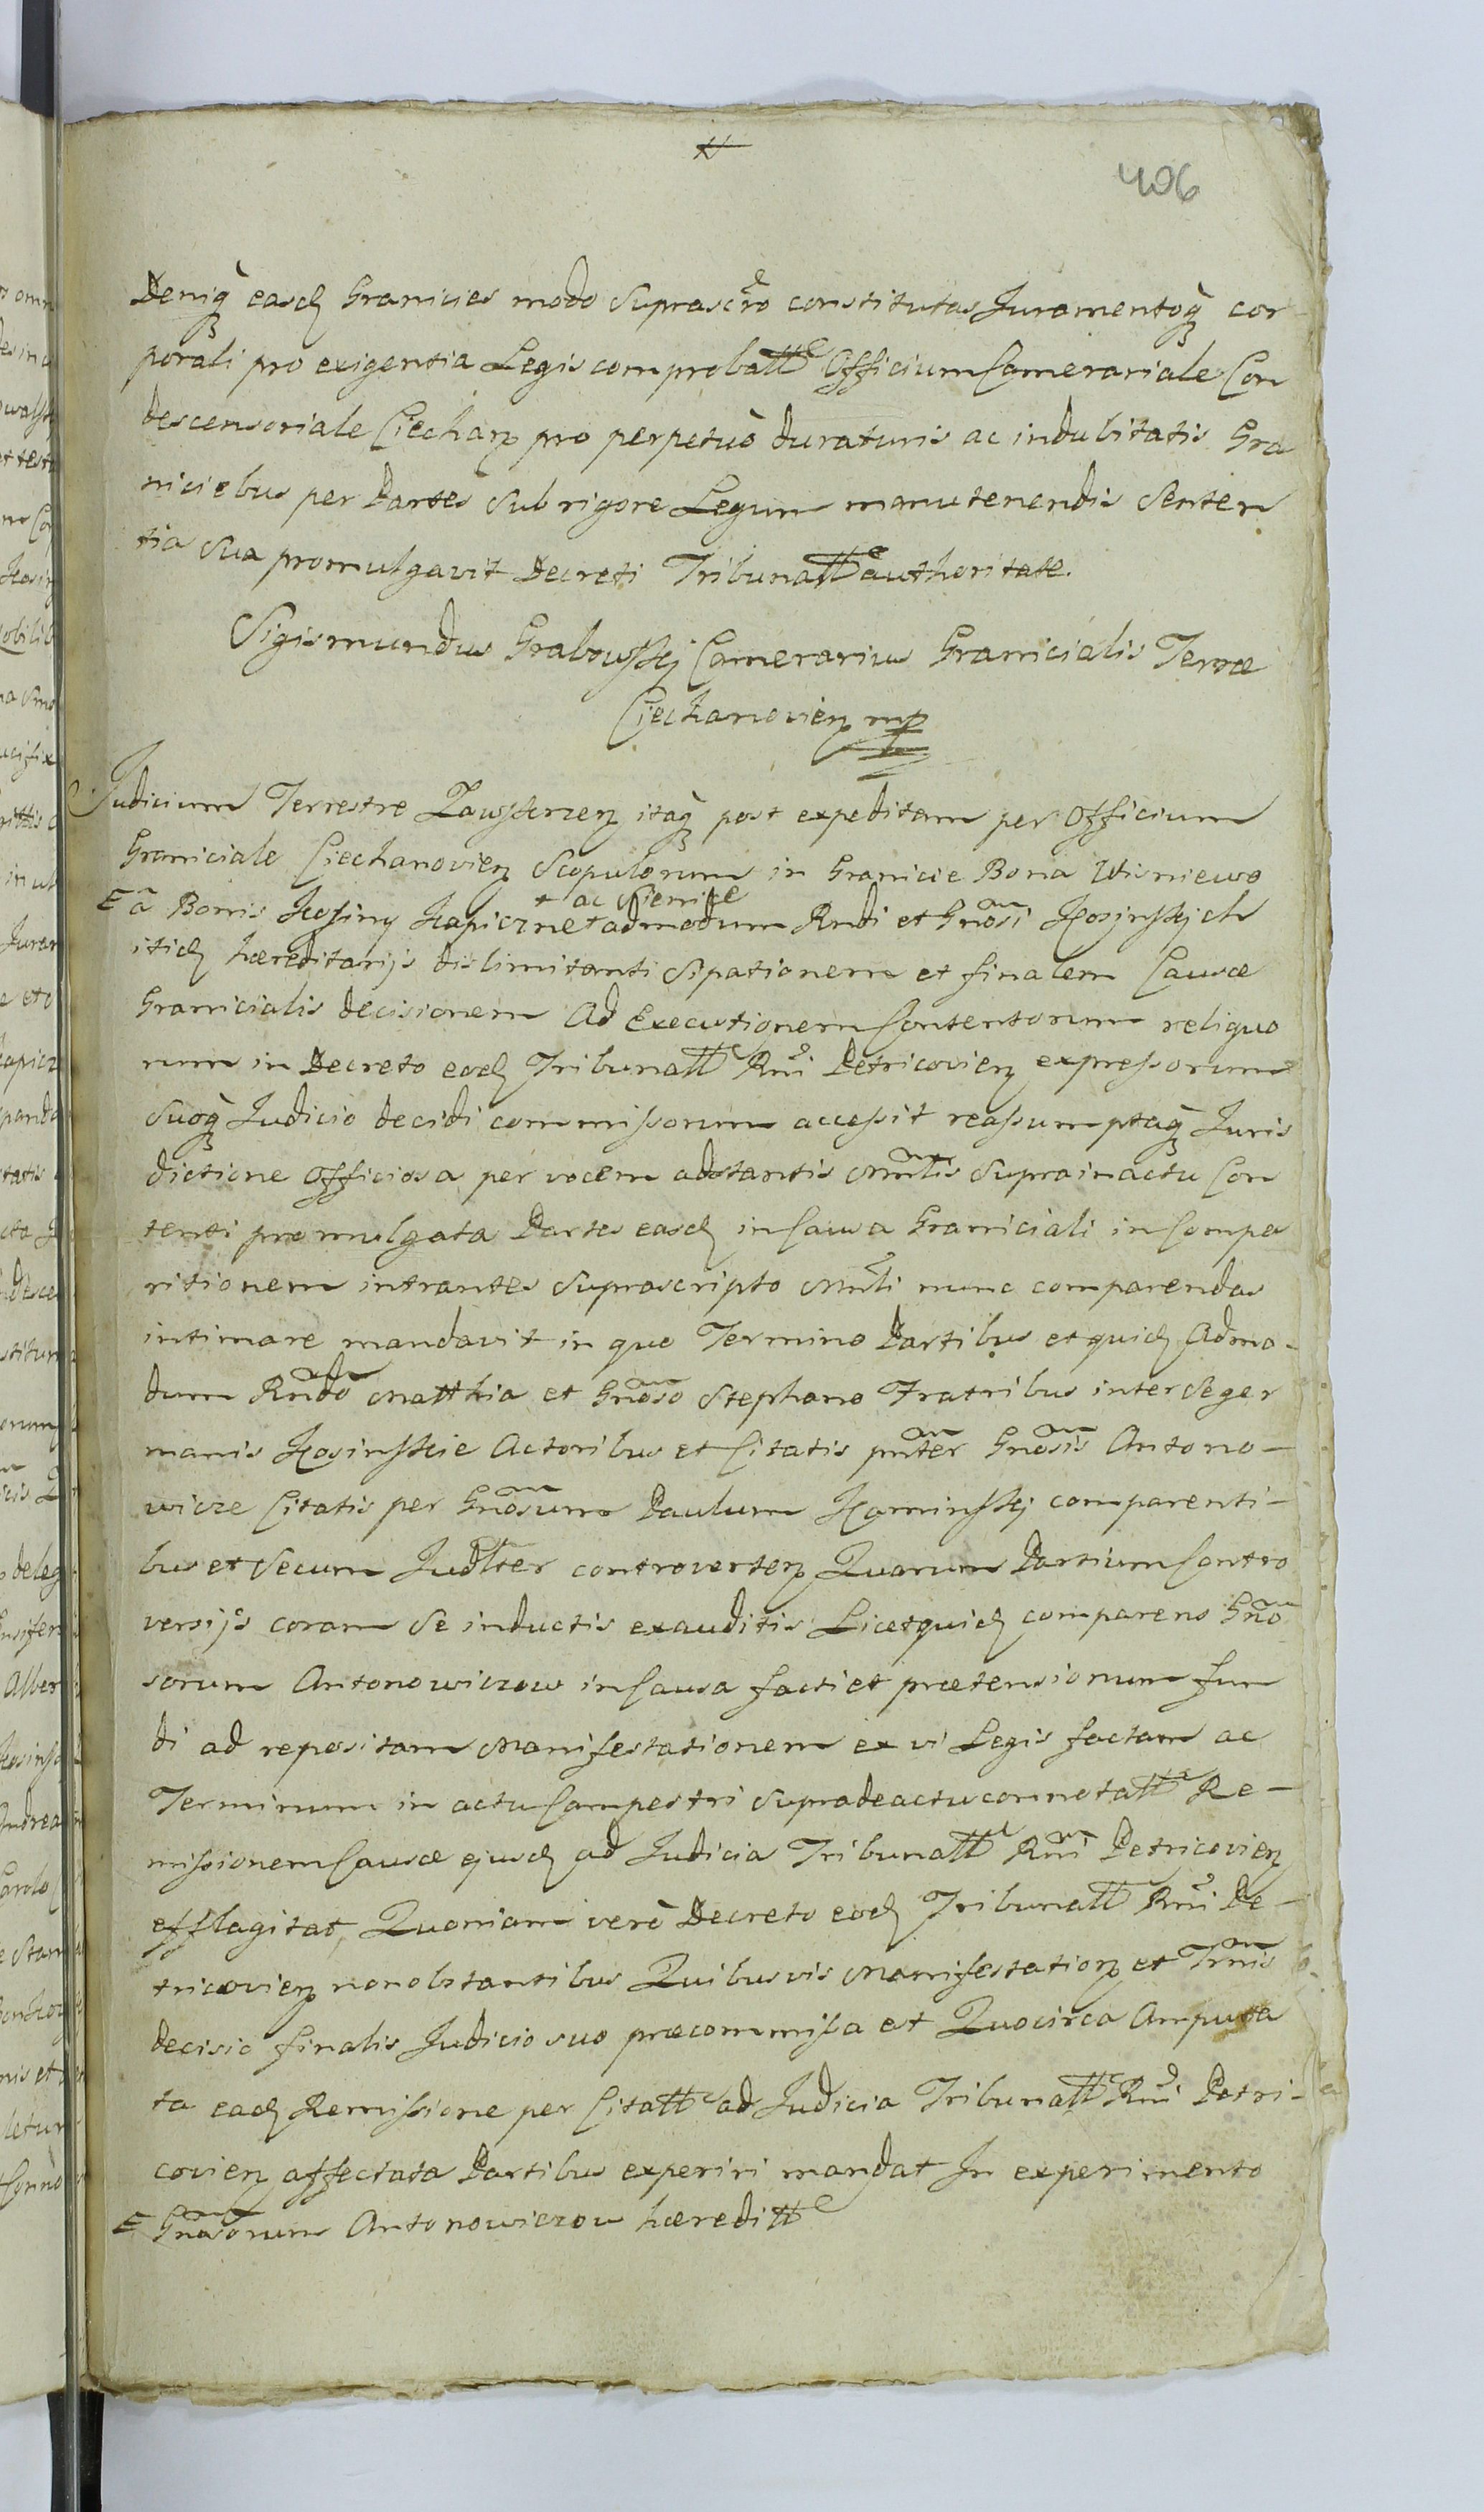 406
Deniq₃ easd Granicies modo suprascr̃o constitutas Juramentoq₃ cor-
porali pro exigentia Legis comprobatt Officium Camerariale Con
descensoriale Ciechan pro perpetuò duraturis ac indubitatis Gra
niciebus per Partes sub rigore Legum manutenendis Senten
tia sua promulgavit Decreti Tribunatt authoritate.
Sigismundus Grabowskj Camerarius Granicialis Terræ
Ciechanovien mp
Judicium Terrestre Zawskrzen itaq₃ post expeditam per Officium
Graniciale Ciechanovien Scopulorum in Granicie Bona Wisniewo
+ ac Sienice
à Bonis Kosiny Kapiczne + admodum Rndi et Gnosi Kosinskich
itid hæreditarijs dislimitanti sipationem et finalem Causæ
Granicialis decisionem Ad Executionem Contentorum reliquo
rum in Decreto eod Tribunatt Rñi Petricovien expressorum
suoq₃ Judicio decidi commissorum accessit reassumptaq₃ Juris
dictione officiosa per vocem adstantis Mñlis supra in actu Con
tenti promulgata Partes easd in Causa Graniciali in Compa
ritionem intrantes suprascripto Mñli nunc comparendas
intimare mandavit in quo Termino Partibus et quid Admo-
dum Rñdo Matthia et Gñoso Stephano Fratribus inter se ger
manis Kosinskie Actoribus et Citatis pñter Gñosis Antono-
wicze Citatis per Gñosum Paulum Kaminskj comparenti-
bus et secum Judlter controverten Quorum Partium Contro
versijs coram se inductis exauditis Licet quid comparens Gño
sorum Antonowiczow in Causa facti et prætensionum fun
di ad repositam Manifestationem ex vi Legis factam ac
Terminum in actu Campestri supra de actu connotatt Re-
missionem Causæ ejusd ad Judicia Tribunatt Rñi Petricovien
efflagitat, Quoniam verò Decreto eod Tribunatt Rñi Pe-
tricovien non obstantibus Quibusvis Manifestation et Trñis
decisio finalis Judicio suo præcommissa est Quocirca Amputa
ta ead Remissione per Citatt ad Judicia Tribunatt Rñi Petri-
covien affectata Partibus experiri mandat In experimento
Gñosorum Antonowiczow hæreditt